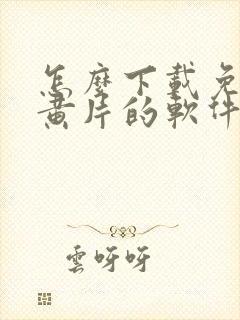 怎麼下載免
黃片的軟件
雲呀呀